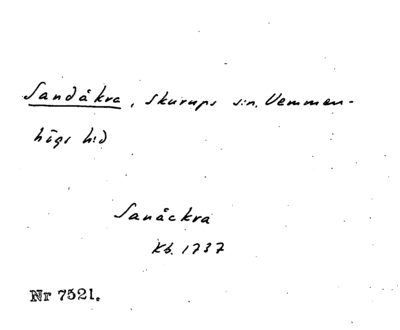 Sandåkra, Skurups s:n, Vemmen-
högs h:d
Sanåckra
Kb. 1737
Nr 7521.